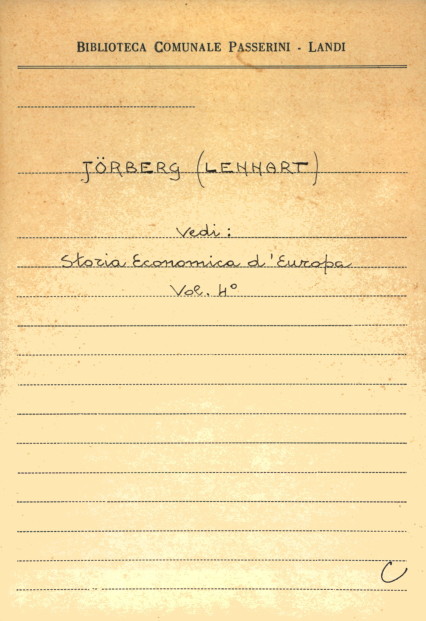 BIBLIOTECA COMUNALE PASSERINI - LANDI
JÖRBERG (LENNART)
Vedi:
Storia Economica d'Europa
Vol. 4°
C